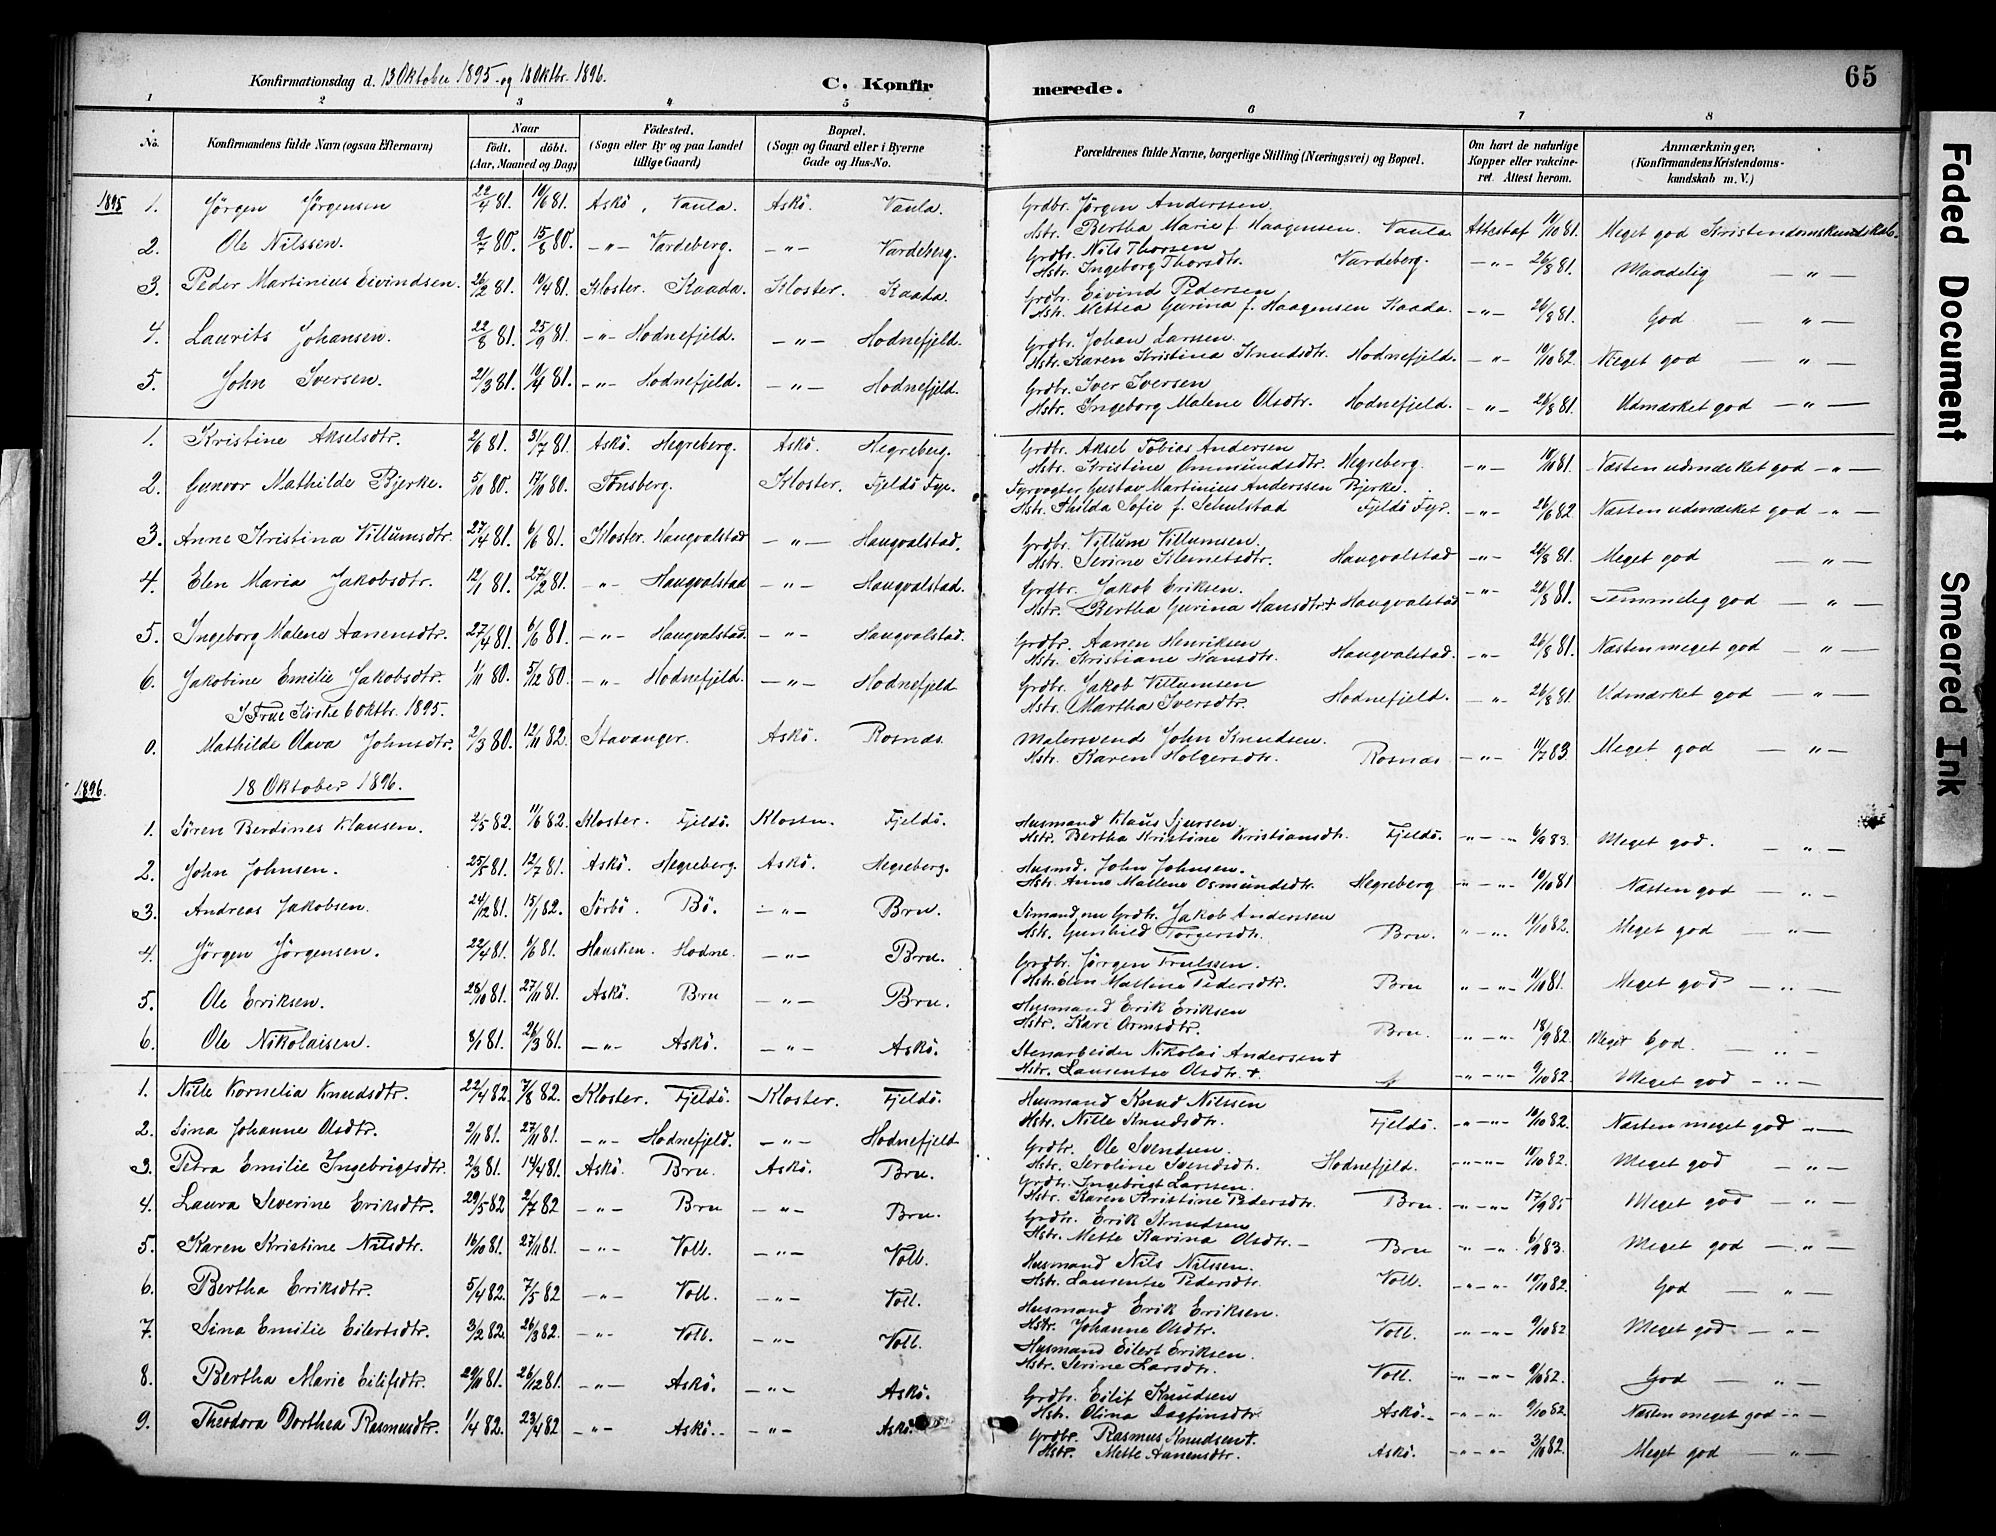 Konfirmationsdag d. 13 Oktober 1895 og 18 Oktbr. 1896.
C. Konfirmerede.
65
1 2 3 4 5 6 7 8
No. Konfirmandens fulde Navn (ogsaa Efternavn) Naar födt. döbt. (Aar, Maaned og Dag) Födested. (Sogn eller By og paa Landet tillige Gaard) Bopæl. (Sogn og Gaard eller i Byerne Gade og Hus-No. Forældrenes fulde Navne, borgerlige Stilling (Næringsvei) og Bopæl. Om havt de naturlige Kopper eller vakcineret. Attest herom. Anmærkninger. (Konfirmandens Kristendomskundskab m. V.)
1895 1. Jörgen Jörgensen 22/4 81. 19/6 81. Askö, Vaula. Askö. Vaula. Grdbr. Jörgen Anderssen.
Hstr. Bertha Marie f. Haagensen. Vaula Attest af 11/10 81. Meget god Kristendomskundskab.
2. Ole Nilssen. 9/7 80. 15/8 80. -"- Vardeberg. -"- Vardeberg. Grdbr. Nils Thorsen
Hstr. Ingeborg Thorsdtr. Vardeberg. -"- 26/8 81. Maadelig -"-
3. Peder Martinius Eivindsen. 26/2 81. 19/4 81. Kloster. Kaada. Kloster. Kaada. Grdbr. Eivind Pedersen
Hstr. Mettea Gurina f. Haagensen Kaada. -"- 26/8 81. God -"-
4. Laurits Johansen. 22/8 81. 25/9 81. -"- Hodnefjeld. -"- Hodnefjeld. Grdbr. Johan Larssen.
Hstr. Karen Kristina Knudsdtr. Hodnefjeld. -"- 19/10 82. Meget god -"-
5. John Iversen. 21/3 81. 19/4 81. -"- Hodnefjeld. -"- Hodnefjeld. Grdbr. Iver Iversen
Hstr. Ingeborg Malene Olsdtr. Hodnefjeld. -"- 26/8 81. Udmærket god -"-
1. Kristine Akselsdtr. 2/6 81. 31/7 81. Askö. Hegreberg. Askö. Hegreberg. Grdbr. Aksel Tobias Andersen
Hstr. Kristine Ommundsdtr. Hegreberg. -"- 19/10 81. Næsten udmærket god -"-
2. Gunvor Mathilde Bjerke. 5/10 80. 17/10 80. Tönsberg. Kloster. Fjeldö Fyr. Fyrvogter Gustav Martinius Anderssen Bjerke.
Hstr. Thilda Sofie f. Schulstad Fjeldö Fyr. -"- 26/6 82 Næsten udmærket god -"-
3. Anne Kristina Villumsdtr. 27/4 81. 6/6 81. Kloster. Haugvalstad -"- Haugvalstad. Grdbr. Villum Villumsen.
Hstr. Serine Klemetsdtr. Haugvalstad -"- 26/8 81. Meget god -"-
4. Elen Maria Jakobsdtr. 12/1 81. 27/2 81. -"- Haugvalstad -"- Haugvalstad. Grdbr. Jakob Eriksen.
Hstr. Bertha Gurina Hansdtr + Haugvalstad -"- 26/8 81. Temmelig god -"-
5. Ingeborg Malene Aanensdtr. 27/4 81. 6/6 81. -"- Haugvalstad. -"- Haugvalstad. Grdbr. Aanen Henriksen
Hstr. Kristiane Hansdtr. Haugvalstad. -"- 26/8 81. Næsten meget god -"-
6. Jakobine Emilie Jakobsdtr. 1/11 80. 5/12 80. -"- Hodnefjeld. -"- Hodnefjeld Grdbr. Jakob Villumsen
Hstr. Martha Iversdtr. Hodnefjeld. -"- 26/8 81. Udmærket god -"-
I Frue Kirke 6 Oktbr. 1895.
0. Mathilde Olava Johnsdtr. 2/3 80. 12/11 82. Stavanger. Askö. Rosnæs. Malersvend John Knudsen.
Hstr. Karen Holgersdtr. Rosnæs -"- 11/7 83. Meget god -"-
1896. 18 Oktober 1896.
1. Sören Berdines Klausen. 2/5 82. 11/6 82. Kloster. Fjeldö. Kloster. Fjeldö. Husmand Klaus Sjursen.
Hstr. Bertha Kristine Kristiansdtr. Fjeldö. "-" 6/9 83. Meget god. -"-
2. John Johnsen. 25/5 81. 12/7 81. Askö. Hegreberg. Askö. Hegreberg. Husmd. John Johnsen.
Hstr. Anne Mallene Osmundsdtr. Hegreberg "-" 19/10 81 Næsten god -"-
3. Andreas Jakobsen. 24/12 81. 15/1 82. Sörbö. Bö. -"- Bru. Sömand nu Grdbr. Jakob Anderssen
Hstr. Gunhild Torgersdtr. Bru. "-" 19/10 82. Meget god -"-
4. Jörgen Jörgensen. 22/4 81. 6/6 81. Hausken. Hodne. -"- Bru. Grdbr. Jörgen Truelssen.
Hstr. Elen Malline Pedersdtr. Bru "-" 11/10 81. Meget god -"-
5. Ole Eriksen. 26/10 81. 27/11 81. Askö. Bru -"- Bru. Husmand Erik Eriksen
Hstr. Kari Ormsdtr. Bru. "-" 18/9 82. Meget God. -"-
6. Ole Nikolaisen. 8/1 81. 26/3 81. -"- Askö. -"- Askö. Stenarbeider Nikolai Andersen +
Hstr. Laurentse Olsdtr. +. "-" 9/10 82. Meget god -"-
1. Nille Kornelia Knudsdtr. 22/4 82. 7/8 82. Kloster. Fjeldö. Kloster. Fjeldö. Husmand Knud Nilssen
Hstr. Nille Knudsdtr. Fjeldö. "-" 10/10 82. Næsten meget god "-
2. Sina Johanne Olsdtr. 2/11 81. 27/11 81. -"- Hodnefjeld. -"- Hodnefjeld Grdbr. Ole Svendsen.
Hstr. Seroline Svendsdtr. Hodnefjeld. "-" 10/10 82. Meget god -"-
3. Petra Emilie Ingebrigtsdtr. 2/3 81. 14/4 81. Askö. Bru. Askö. Bru. Grdbr. Ingebrigt Larssen.
Hstr. Karen Kristine Pedersdtr. Bru. "-" 17/9 85. Meget god -"-
4. Laura Severine Eriksdtr. 29/5 82 2/7 82 -"- Bru -"- Bru. Grdbr. Erik Knudsen
Hstr. Mette Karina Olsdtr. - Bru "-" 6/9 83. Meget god -"-
5. Karen Kristine Nilsdtr. 16/10 81. 27/11 81. -"- Voll. -"- Voll. Husmand Nils Nilssen.
Hstr. Laurentse Pedersdtr. Voll. "-" 10/10 82. God -"-
6. Bertha Eriksdtr. 5/4 82. 7/5 82 -"- Voll. -"- Voll. Husmand Erik Eriksen.
Hstr. Johanne Olsdtr. Voll. "-" 9/10 82 Meget god -"-
7. Sina Emilie Eilertsdtr. 3/2 82. 26/3 82. -"- Voll. -"- Voll. Husmand Eilert Eriksen.
Hstr. Serine Larsdtr. Voll. "-" 9/10 82. God -"-
8. Bertha Marie Eilifsdtr. 29/10 81. 26/12 81. -"- Askö. -"- Askö. Grdbr. Eilif Knudsen
Hstr. Olina Dagfinsdtr. Askö. - "-" 9/10 82. Næsten meget god -"-
9. Theodora Dorthea Rasmusdtr. 1/4 82. 23/4 82 -"- Askö. - -"- Askö. Grdbr. Rasmus Knudsen +.
Hstr. Mette Aanensdtr. Askö. -"-"- 3/10 82. Meget god -"-
Faded Document
Smeared Ink